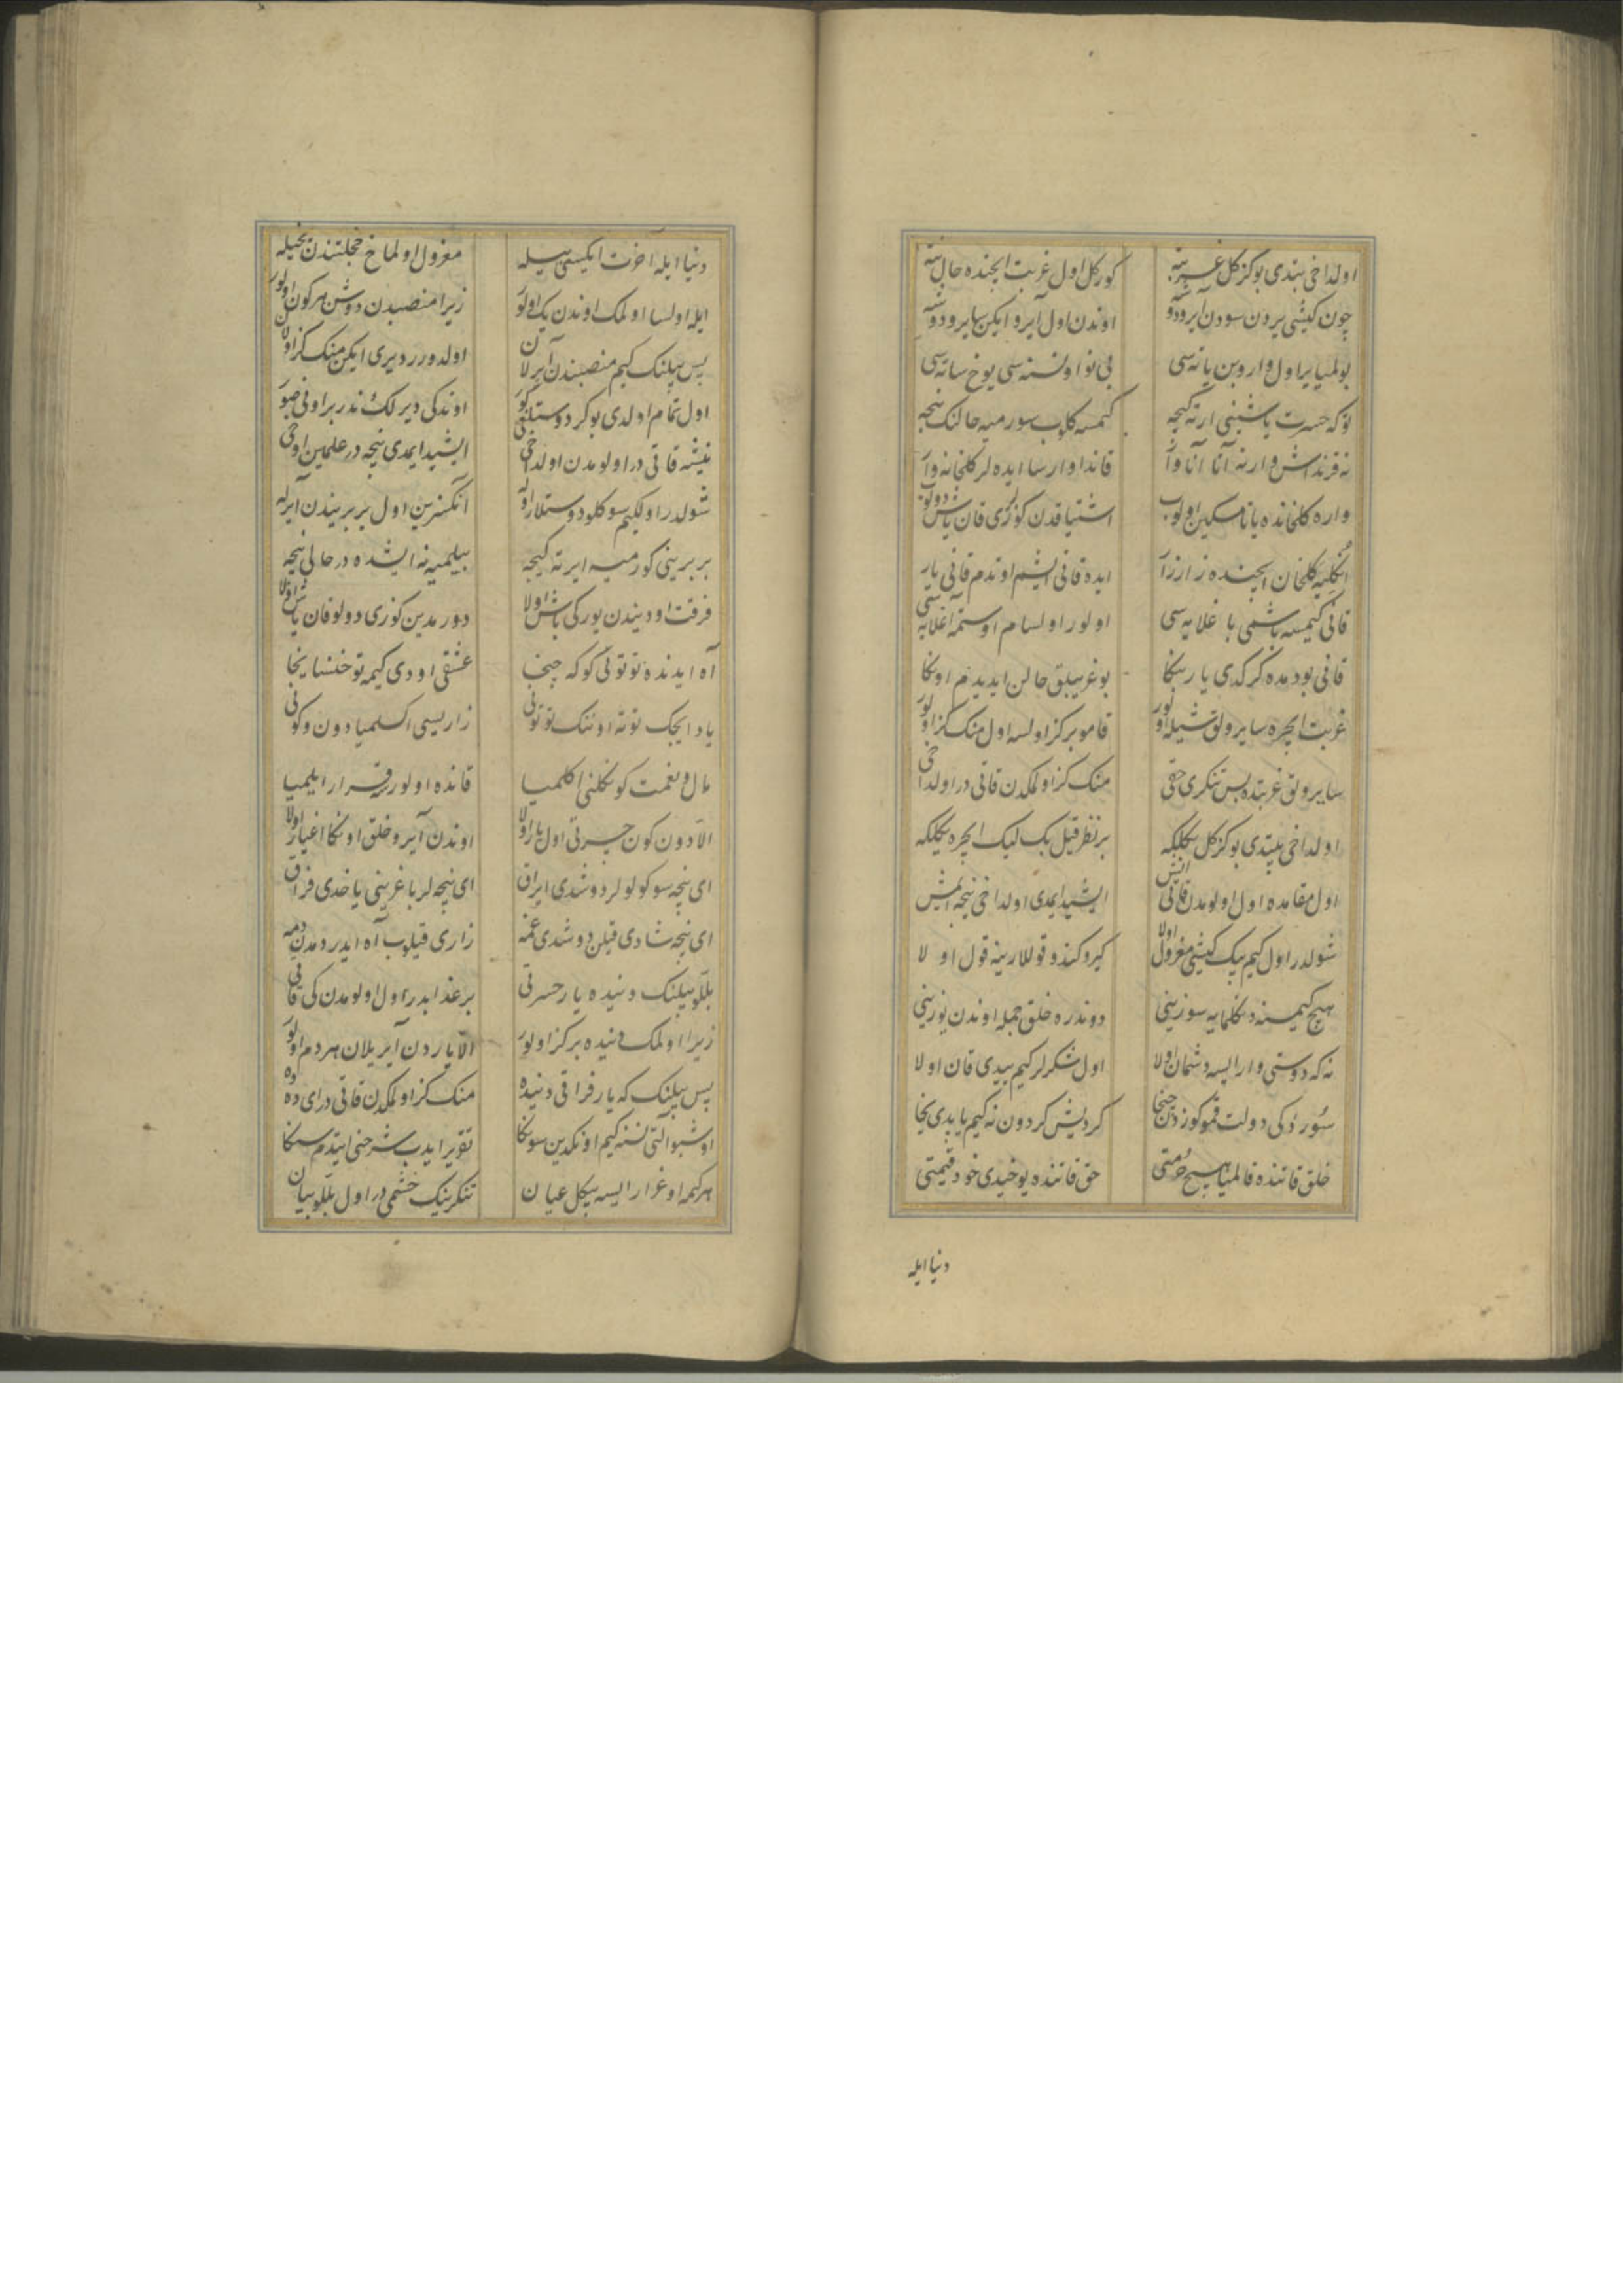 اولداخی بتدی بو کز کل غربته کور کل اول غربت ایچنده حال نته
چون کیشی یردن سودن ایرو دوشه اوندن اول آیرو ایکن سایرو دوشه
بولمیا یر اول واروبن یاته سی بی نوا اولسنه سی یوخ ساته سی
توکه حسرت یاشینی ارته کیجه کیمسه کلوب سورمیه حالنک نیجه
نه قرنداش وار نه آتا آنا وار قاندا وارسا ایده لر کلخانه وار
واره کلخانده یاتا مسکین اولوب اشتیاقدن کوزی قان یاش دولوب
انکلیه کلخان ایچنده زار زار ایده قانی ایشم اوندم قانی یار
قانی کیمسه باشمی باغلایه سی اولور اولسام اوستمه اغلایه سی
قانی بودمده کرکدی یار بنکا بو غریبلق حالن ایدیدم اونکا
غربت ایچره سایرولق شیله اولور قامو بر کز اولسه اول منک کز اولور
سایرولق غربتده بس تنکری حقی منک کز اولمکدن قاتی در اولداخی
اولداخی بیتدی بو کز کل بکلیکه بر نظر قیل بک لیک ایچره یکلیکه
اول مقامده اول اولومدن قاتی ایش ایشید ایمدی اولداخی نیجه ایمش
شولدر اول کیم بیک کیشی معزول اولا کیرو کندو قوللارینه قول اولا
هیچ کیمسنه دنکلمایه سوزینی دوندره خلق جمله اوندن یوزینی
نه که دوستی وار ایسه دشمان اولا اول شکرلر کیم ییدی قان اولا
سوردوکی دولت قمو کوزدن چنجا کردیش کردون نه کیم یاپدی ینجا
خلق قاتنده قالمیا هیچ حرمتی حق قاتنده یوخیدی خود قیمتی
دنیا ایله
دنیا ایله آخرت ایکیسی بیله معزول اولماخ خجلتندن بیله
ایله اولسا اولمک اوندن یک اولور زیرا منصبدن دوشن هر کون اولور
پس بیلنک کیم منصبندن آیرلان اولدورر دیری ایکن منک کز اولان
اول تمام اولدی بو کز دوستلغی کور اوندکی دیرلک ندر بر اونی صور
نیشه قاتی در اولومدن اولداخی ایشید ایمدی نیجه در علمین اوخی
شولدر اولکیم سوکلو دوستلار اوله آنکسزین اول بر بریندن آیرله
بر برینی کورمیه ایرته کیجه بیلمیه نه ایشده در حالی نیجه
فرقت اودیندن یورکی باش اولا دورمدین کوزی دولو قان یاش اولا
آه ایدنده توتونی کوکه چیخا عشقی اودی کیمه توخنسا ینجا
یاد ایجک توته اوننک توتونی زاریسی اکسلمیا دون و کونی
مال و نعمت کونکلنی اکلمیا قانده اولورسه قرار ایلمیا
الا دون کون حسرتی اول یار اولا اوندن آیرو خلق اونکا اغیار اولا
ای نیجه سوکولولر دوشدی ایراق ای نیجه لر باغرینی یاخدی فراق
ای نیجه شادی قیلن دوشدی غمه زاری قیلوب آه ایدر دمدن دمه
بللو بیلنک دنیده یار حسرتی بر عذابدر اول اولومدن کی قاتی
زیرا اولمک دنیده بر کز اولور الا یاردن آیریلان هر دم اولور
پس بیلنک که یار فراقی دنیده منک کز اولمکدن قاتی در ای دده
اوشبو التی نسنه کیم اونکدین سونکا تقریر ایدب شرحنی ایتدم سنکا
هر کیمه اوغرار ایسه بیکل عیان تنکرینک خشمی در اول بللو بیان